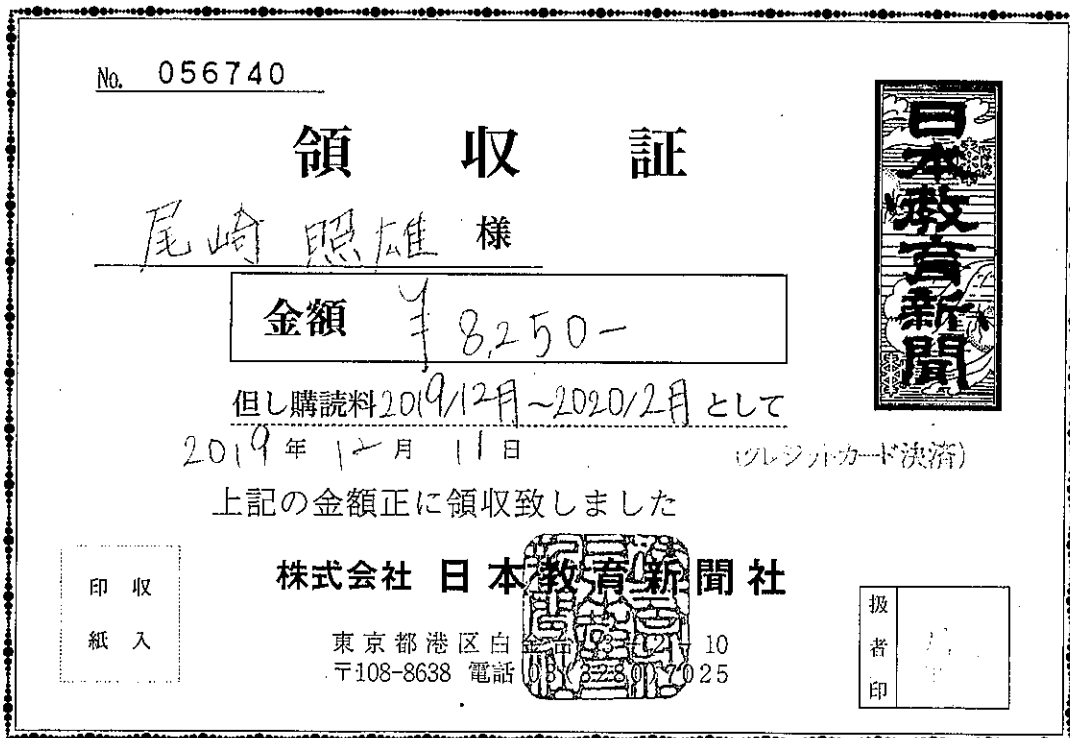 No. 056740
領収証
日本教育新聞
尾崎 照雄 様
金額 ¥8,250-
但し購読料2019/12月~2020/2月として
2019年12月11日
(クレジットカード決済)
上記の金額正に領収致しました
株式会社 日本教育新聞社
東京都港区白金台3-2-10
〒108-8638 電話 03(3280)7025
収入
印紙
扱者印